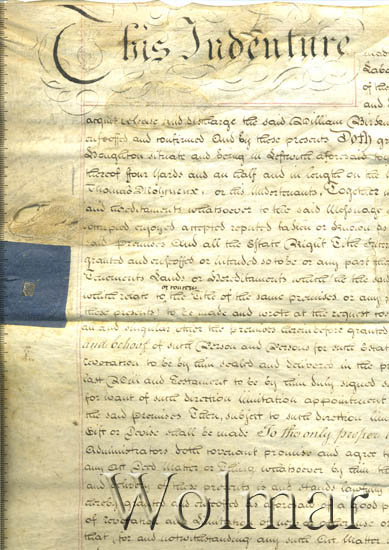 This Indenture
made
Labo
of the
and
acquit release and discharge the said William Birken
enfeoffed and confirmed And by these presents Doth gr
Houghton situate and being in Leftwich aforesaid
thereof four Yards and an half and in length on the
Thomas Molyneux, or his undertenants, Together
and Hereditaments whatsoever to the said Messuage
occupied enjoyed accepted reputed taken or known as
said premises And all the Estate Right Title Inter
granted and enfeoffed or intended so to be or any part the
Tenements Lands or Hereditaments which the said
or concern
which relate to the Title of the same premises or any
these presents to be made and wrote at the request
all and singular other the premises hereinbefore grante
and behoof of such Person and Persons for such Estat
revocation to be by him sealed and delivered in the pre
last Will and Testament to be by him duly signed
for want of such direction limitation appointment
the said premises Then, subject to such direction lim
Gift or Devise shall be made To the only proper
Administrators doth covenant promise and agree to
any Act Deed Matter or Thing whatsoever by him
and of these presents is and stands lawfully
hereby granted and enfeoffed as aforesaid of a good p
of revocation and limitation of use or uses or
that (for and notwithstanding any such Act Matter
Wolmar